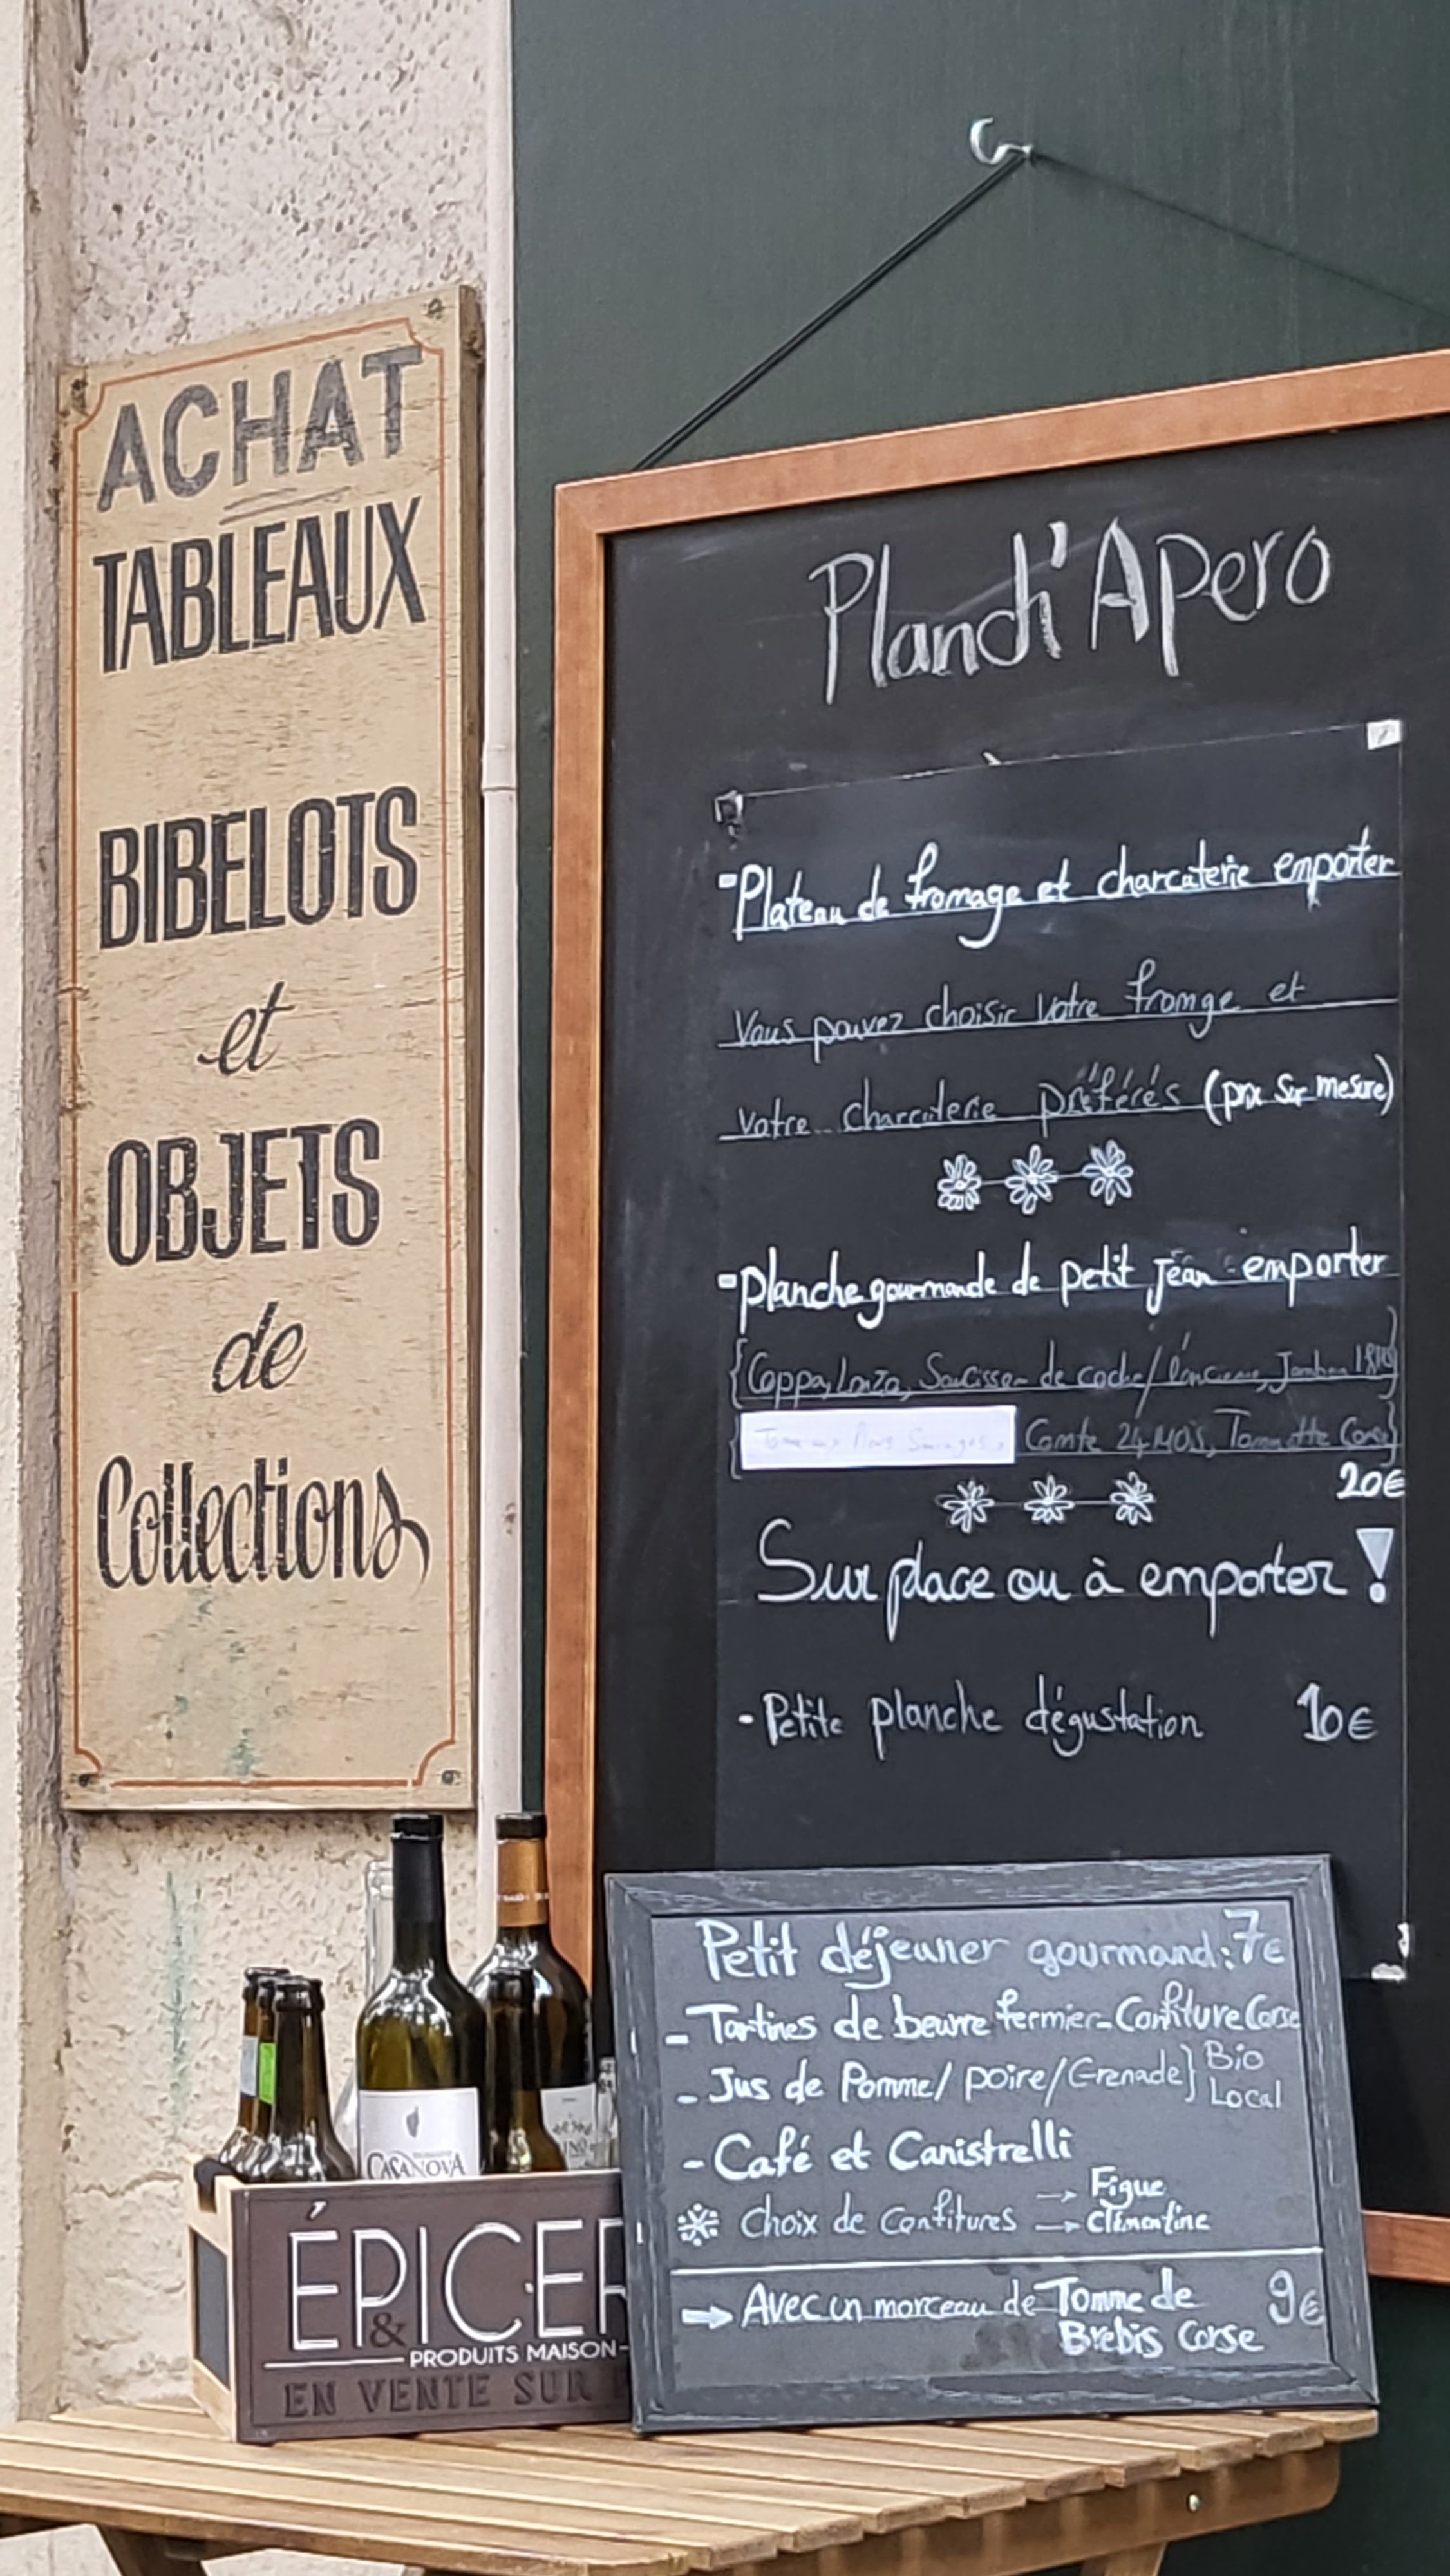 ACHAT
TABLEAUX
BIBELOTS
et
OBJETS
de
Collections
Planch'Apero
Plateau de fromage et charcuterie emporter
Vous pouvez choisir votre fromge et
votre charcuterie préférés (prix sur mesure)
Planche gourmande de petit jean emporter
Coppa, Lonzo, Saucisson de coche/l'ancienne, Jambon
Comte 24 MOis, Tommette Corse
20€
Sur place ou à emporter !
- Petite planche dégustation 10€
Petit déjeuner gourmand: 7€
- Tartines de beurre fermier - Confiture Corse
- Jus de Pomme/ poire/Grenade} Bio
Local
- Café et Canistrelli
Choix de Confitures → Figue
→ Clémentine
→ Avec un morceau de Tomme de 9€
Brebis Corse
CASANOVA
ÉPICER
&
PRODUITS MAISON
EN VENTE SUR